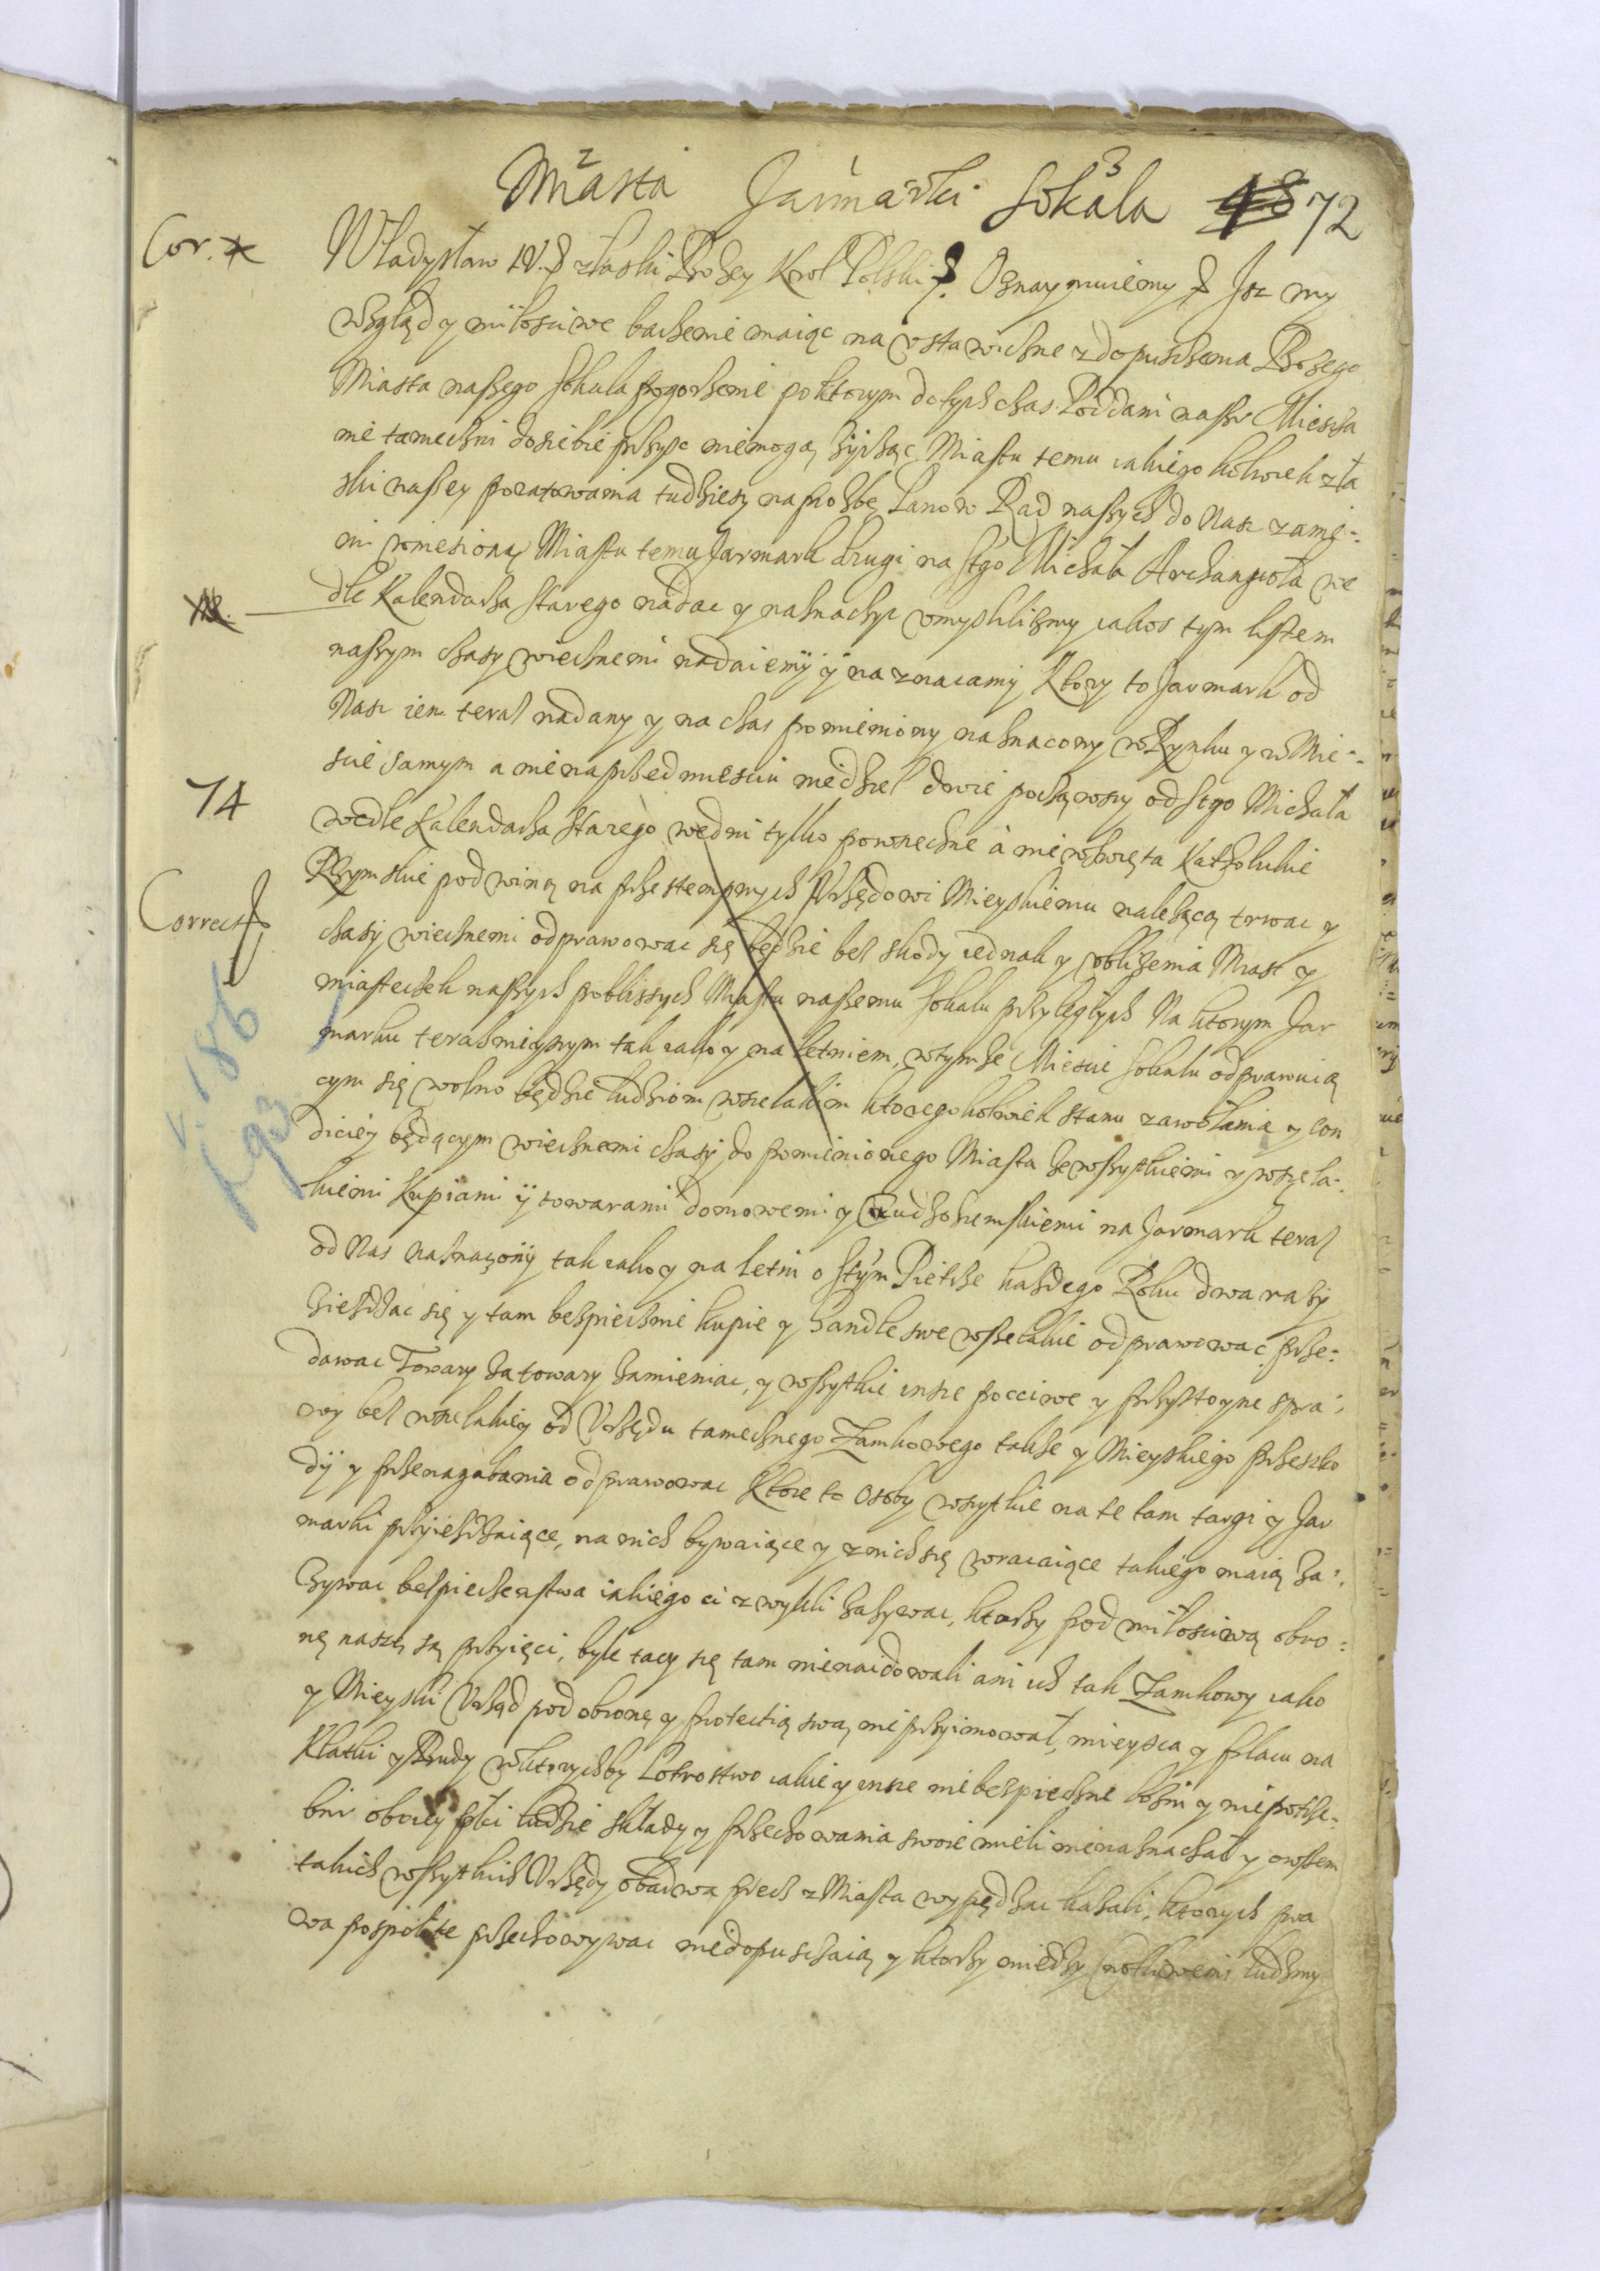 Miasta Jarmarki Sokala 48 72
2 3
Cor.
Władysław IV. z łaski Bozey Krol Polski. Oznaymuiemy Jsz my
wzgląd y miłosciwe baczenie maiąc na vstawiczne z dopusczenia Bozego
Miasta naszego Sokala pogorzenie po ktorym do tych czas Poddani naszy Miescza
nie tameczni do siebie przysc niemogą, zycząc Miastu temu iakiego kolwiek z ła
ski naszey poratowania tudziesz na prozbę Panow Rad naszych do Nas za nie-
mi wniesioną Miastu temu Jarmark drugi na Stgo Michała Archangioła we
dle Kalendarza starego nadac y naznaczyc vmyslilismy iakos tym listem
naszym czasy wiecznemi nadaiemy y naznacamy Ktory to Jarmark od
Nas ten teraz nadany y na czas pomieniony naznacony w Rynku y w Mie-
scie samym a nie na przedmiesciu niedziel dwie począwszy od Stgo Michała
74
wedle Kalendarza starego we dni tylko powszechne a nie w swięta Katholickie
Rzymskie pod winą na przestempnych Vrzędowi Mieyskiemu nalezącą trwac y
Correct
czasy wiecznemi odprawowac się będzie bez skody iednak y vbliżenia Miast y
miasteczek naszych pobliszych Miastu naszemu Sokalu przyległych Na ktorym Jar
v. 186
marku teraznieyszym tak iako y na letniem, w tymze Miescie Sokalu odprawuią
cym się wolno będzie ludziom wszelakim ktoregokolwiek stanu zawołania y con
diciey będącym wiecznemi czasy do pomienionego Miasta ze wszystkiemi y wszela-
kiemi Kupiami y towarami domowemi y cudzoziemskiemi na Jarmark teraz
od Nas naznaczony tak iako y na letni o Stym Pietrze kazdego Roku dwa razy
ziezdzac się y tam bezpiecznie kupie y handle swe wszelakie odprawowac prze-
dawac Towary za towary zamieniac, y wszystkie insze pocciwe y przystoyne spra-
wy bez wszelakiey od Vrzędu tamecznego Zamkowego takze y Mieyskiego przeszko
dy y przenagabania odprawowac Ktore to osoby wszytkie na te tam targi y Jar
marki przyiezdzaiące, na nich bywaiące y z nich się wracaiące takiego maią za-
zywac bezpieczenstwa iakiego ci zwykli zazywac, ktorzy pod miłosciwą obro-
nę naszę są przyięci, byle tacy się tam nienaidowali ani ich tak Zamkowy iako
y Mieyski Vrząd pod obronę y protectią swą nie przyimował, mieysca y placu na
Klatki y Budy w ktorychby Łotrostwo iakie y insze niebezpieczne
oboiey płci ludzie składy y przechowania swoie mieli nienaznaczał y owszem
takich wszystkich Vrzędy obadwa precz z Miasta wypędzac kazali, ktorych pra
wa pospolite przechowywac niedopusczaią y ktorzy miedzy ludzmy